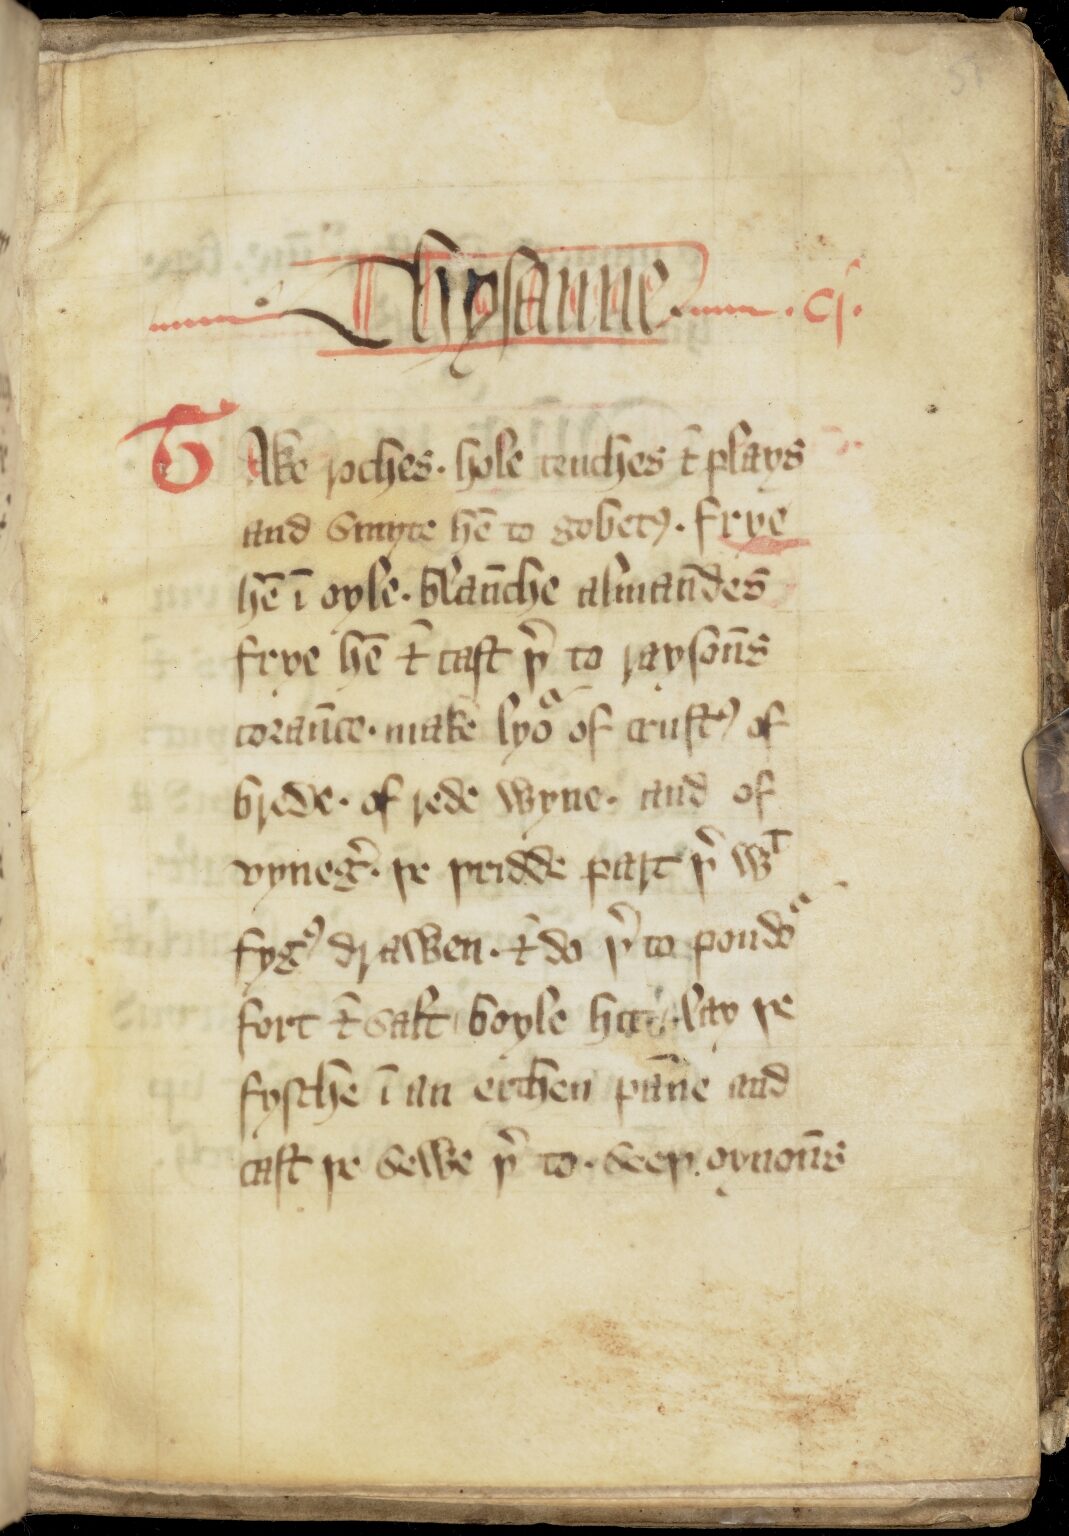 Chysanne .cj.
TAke roches. hole tenches ⁊ plays
and smyte hē to gobetꝭ. frye
hē ī oyle. blañche almañdes
frye hē ⁊ cast þͬ to raysoñs
corañce. make lyoᷓ of crustꝭ of
brede. of rede wyne. and of
vynegͬ. þe þridde part þͬ wᵗ
fygꝭ drawen. ⁊ do þͬ to poudoᷓ
fort ⁊ salt boyle hit. lay þe
fysche ī an erthen pāne and
cast þe sewe þͬ to. seeþ. oynoñs